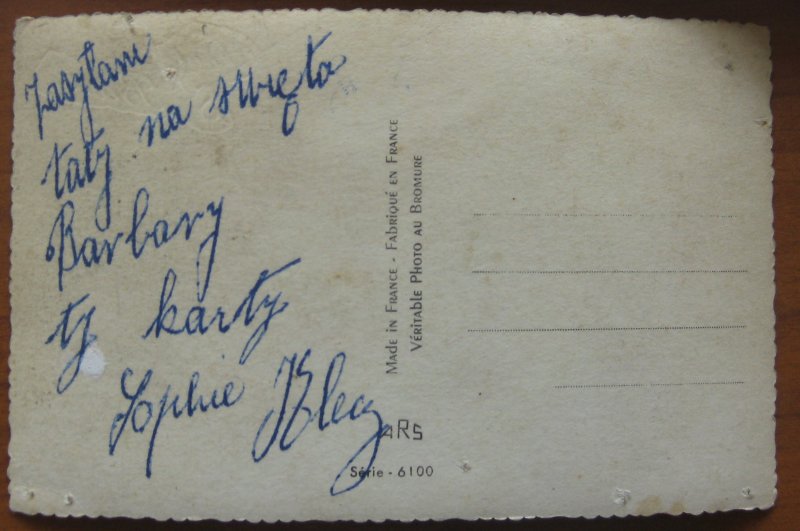 zasyłam
taty na swięta
Barbary
ty karty
Sophie Klecz
MADE IN FRANCE - FABRIQUÉ EN FRANCE
VÉRITABLE PHOTO AU BROMURE
ARS
Série - 6100